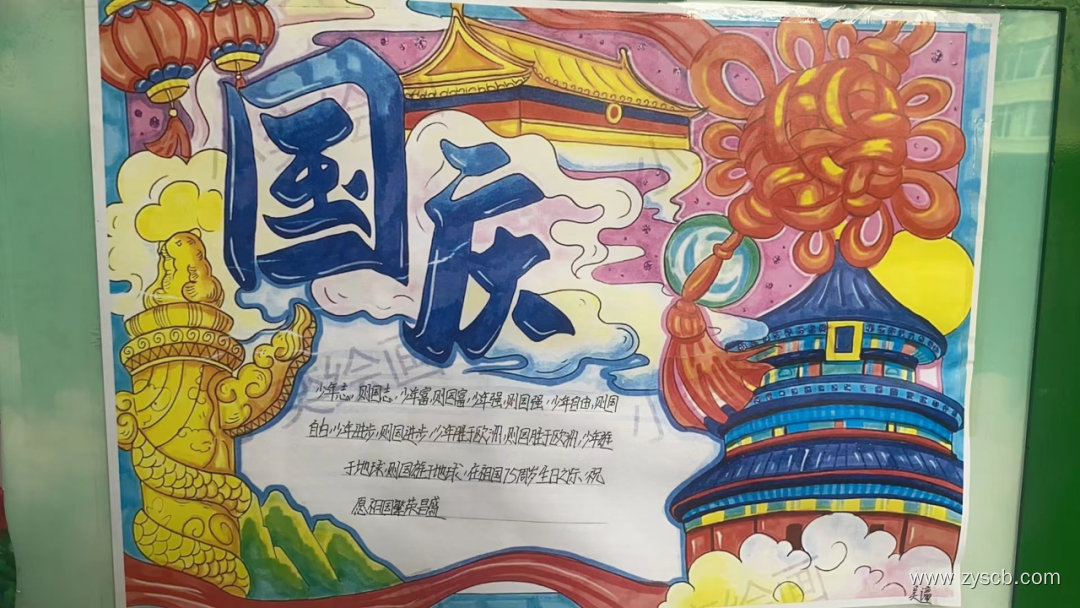 国庆
少年志,则国志,少年富,则国富,少年强,则国强,少年自由,则国
自由,少年进步,则国进步,少年胜于欧洲,则国胜于欧洲,少年雄
于地球,则国雄于地球,在祖国75周岁生日之际,祝
愿祖国繁荣昌盛
www.zyscb.com